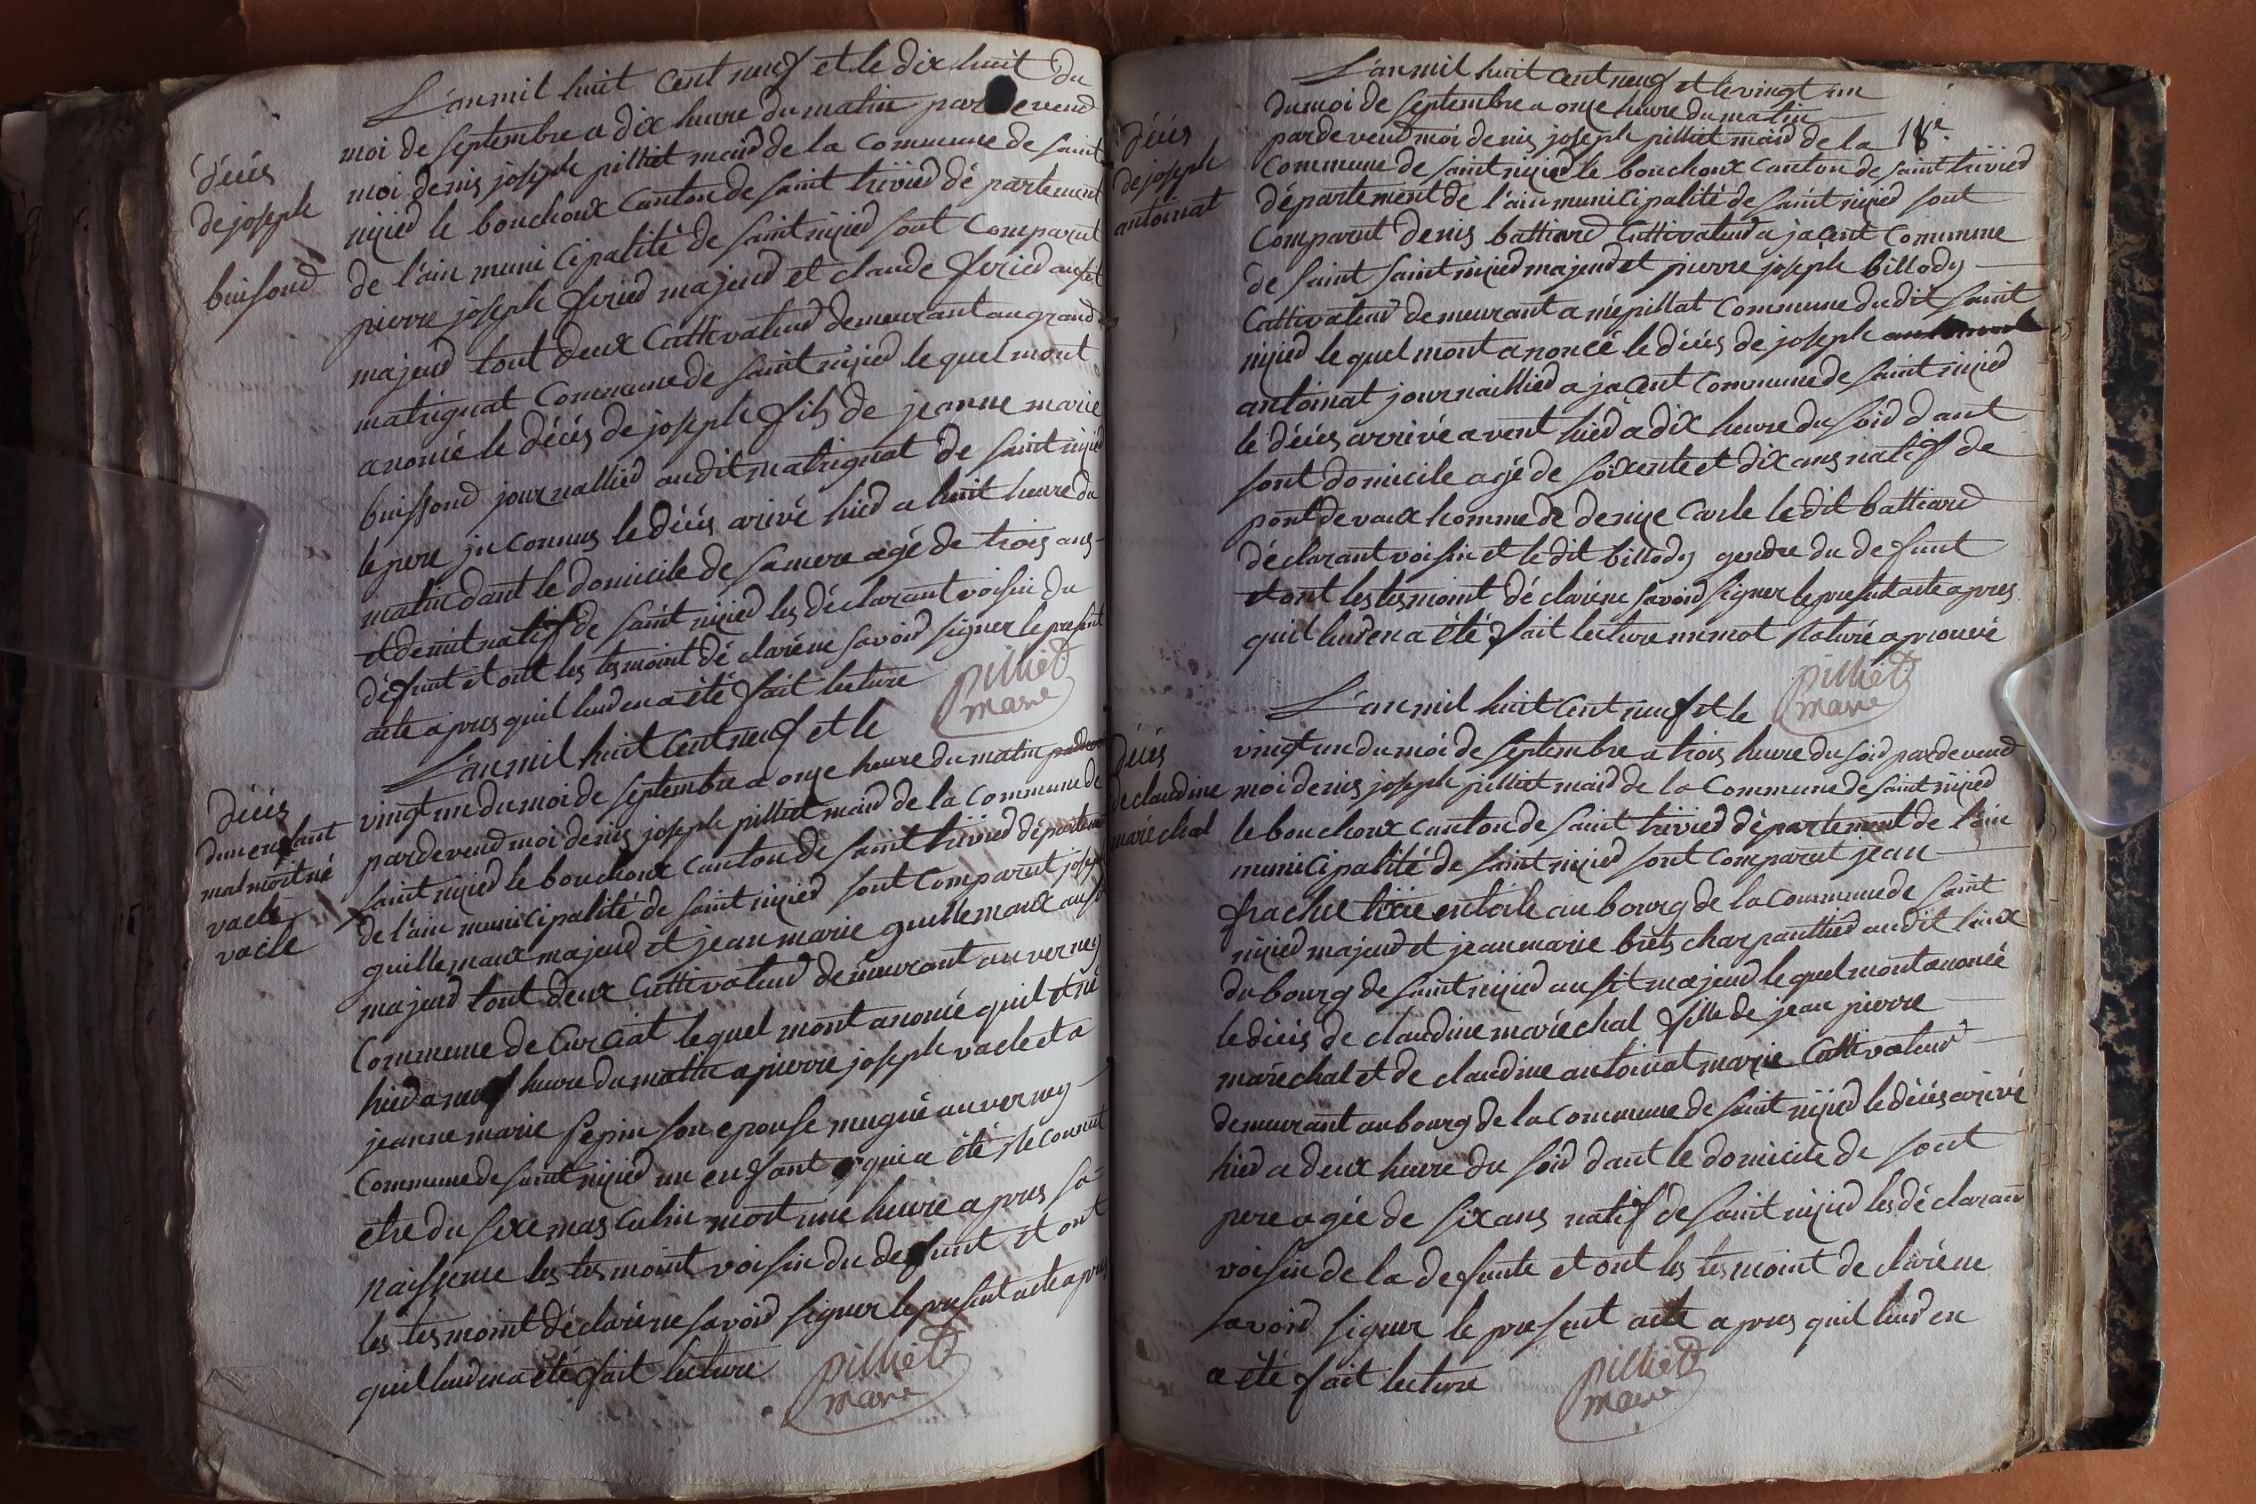 L'an mil huit cent neuf et le dix huit du
moi de septembre a dix heure du matin par devend
moi denis joseph pilliet maid de la commune de saint
nizied le bouchoux canton de saint trivied département
de l'ain municipalité de saint nizied sont comparut
pierre joseph feried majeud et claude feried ausit
majeud tout deux cultivateud demeurant au grand
matrignat commune de saint nizied lequel mont
anoncé le décés de joseph fils de jeanne marie
buissond journallied audit matrignat de saint nizied
le pere jnconnus le décés arivé hied a huit heure du
matin dant le domicile de sa mere agé de trois ans
et demit natif de saint nizied les déclarant voisin du
défunt et ont les tesmoint déclaréne savoid signer le present
acte apres quil leud en a été fait lecture
pilliet
maire
décés
de joseph
buisond
L'an mil huit cent neuf et le
vingt un du moi de septembre a onze heure du matin
pardevend moi denis joseph pilliet maid de la commune de
saint nizied le bouchoux canton de saint trivied département
de l'ain municipalité de saint nizied sont comparut joseph
guillemaux majeud et jean marie guillemaux ausit
majeud tout deux cultivateud demeurant au verney
commune de Curciat lequel mont anoncé quil et né
hied a neuf heure du matin a pierre joseph vacle et a
jeanne marie pepin son epouse mugnié au verney
commune de saint nizied un enfant qui a été reconnut
etre du sexe masculin mort une heure apres sa
naissence les tesmoint voisin du defunt et ont
les tesmoint déclaréne savoid signer le present acte apres
quil leud en a été fait lecture
pilliet
maire
décés
dun enfant
mal mort né
vacle
vacle
L'an mil huit cent neuf et le vingt un
du moi de septembre a onze heure du matin
pardevend moi denis joseph pilliet maid de la
18e
commune de saint nizied le bouchoux canton de saint trivied
département de l'ain municipalité de saint nizied sont
comparut denis battiard cultivateud a jacent commune
de saint saint nizied majeud et pierre joseph billody
cultivateud demeurant a mépillat commune dudit saint
nizied lequel mont anoncé le décés de joseph
antoinat journaillied a jacent commune de saint nizied
le décés arrivé avent hied a dix heure du soid dant
sont domicile agé de soixente et dix ans natif de
pont devaux homme de denize carle le dit battiard
déclarant voisin et le dit billody gendre du defunt
et ont les tesmoint déclaréne savoid signer le present acte apres
quil leud en a été fait lecture un mot raturé aprouvé
pilliet
maire
décés
de joseph
antoinat
L'an mil huit cent neuf et le
vingt un du moi de septembre a trois heure du soid pardevend
moi denis joseph pilliet maid de la commune de saint nizied
le bouchoux canton de saint trivied département de l'ain
municipalité de saint nizied sont comparut jean
frachet tixié en toile au bourg de la commune de saint
nizied majeud et jean marie brets charpanttied audit lieux
du bourg de saint nizied ausit majeud lequel mont anoncée
le décés de claudine maréchal fille de jean pierre
maréchal et de claudine antoinat marie cultivateud
demeurant au bourg de la commune de saint nizied le décés arivé
hied a deux heure du soid dant le domicile de sont
pere agée de six ans natif de saint nizied les déclarant
voisin de la defunte et ont les tesmoint declaréne
savoid signer le present acte apres quil leud en
a été fait lecture
pilliet
maire
décés
de claudine
maréchal